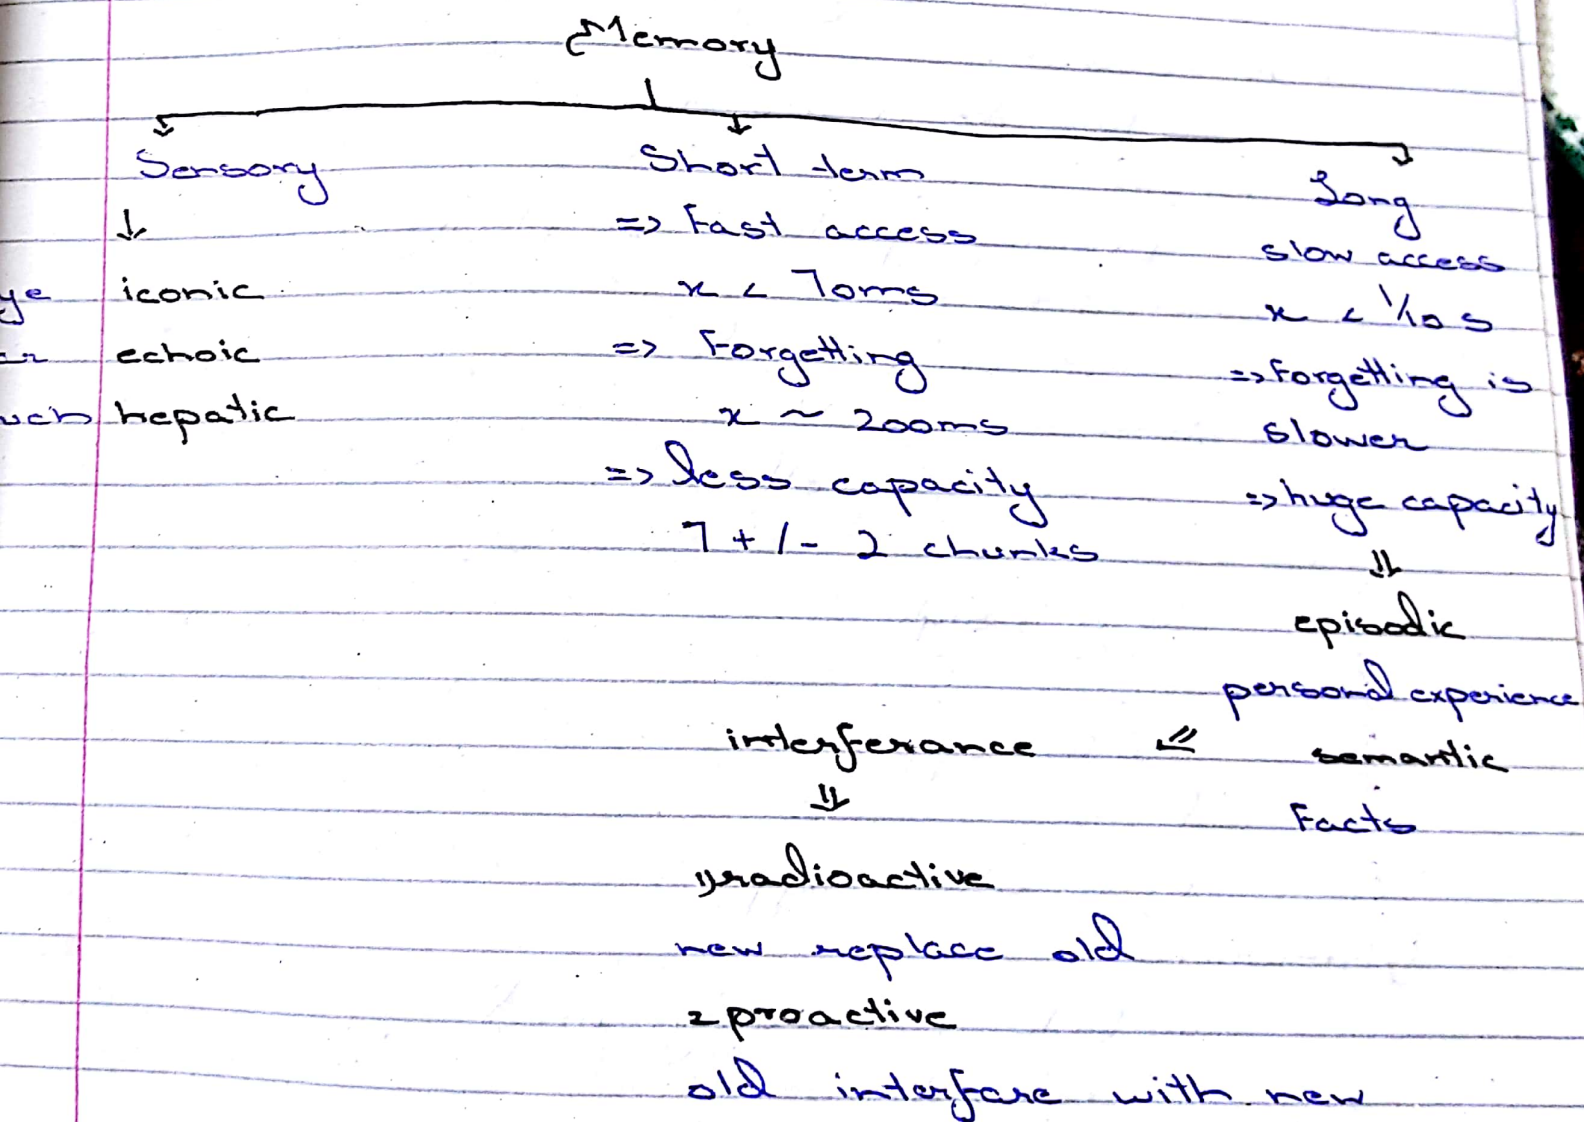 Memory
Sensory
iconic
echoic
hepatic
Short term
=> Fast access
x < 70ms
=> Forgetting
x ~ 200ms
=> less capacity
7 +/- 2 chunks
Long
slow access
x < 1/10 s
=> Forgetting is
slower
=> huge capacity
episodic
personal experience
semantic
Facts
interferance
1) radioactive
new replace old
2 proactive
old interfare with new